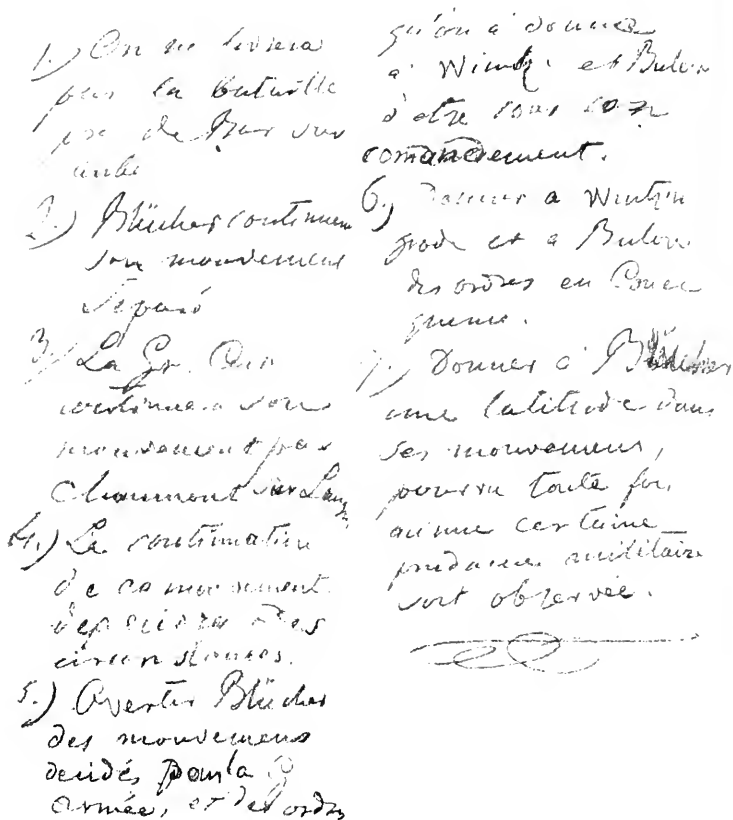 1.) On ne livrera
pas la bataille
près de Bar sur
aube
2.) Blücher continuera
son mouvement
séparé
3.) La Gr. Arm
continuera son
mouvement par
Chaumont sur Lang
4.) La continuation
de ce mouvement
dependra des
circonstances.
5.) Avertir Blücher
des mouvemens
decidés pour la
armée, et des ordres
qu'on a donné
a Wintz. et Bulow
d'etre sous son
comandement.
6.) Donner a Wintzin
grode et a Bulow
des ordres en Conse
quence.
7.) Donner a Blücher
une latitude dans
ses mouvemens,
pourvu toute fois
qu'une certaine
prudence militaire
soit observée.